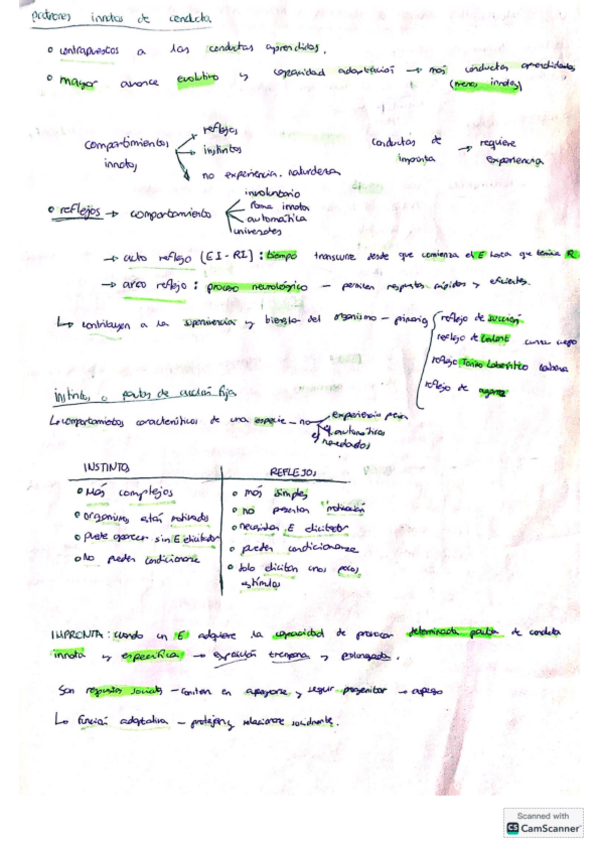 patrones innatos de conducta
o contrapuestos a las conductas aprendidas.
o mayor avance evolutivo y capacidad adaptación → más conductas aprendidas
(menos innatas)
reflejos
comportamientos innatos
instintos
no experiencia, naturaleza
conductas de impronta → requiere experiencia
involuntario
o reflejos → comportamiento
forma innata
automática
universales
→ acto reflejo (EI-RI): tiempo transcurre desde que comienza el E hasta que termina R
→ arco reflejo: proceso neurológico - permiten respuestas rápidas y eficientes.
↳ contribuyen a la supervivencia y bienestar del organismo -
reflejo de succión
reflejo de
reflejo Tónico Laberíntico cabeza
reflejo de agarre
instintos o pautas de acción fija
↳ comportamientos característicos de una especie - no
experiencia previa
automáticos
heredados
INSTINTO
REFLEJOS
o Más complejos
o más simples
o organismos están motivados
o no presentan motivación
o puede aparecer sin E elicitador
o necesitan E elicitador
o No pueden condicionarse
o pueden condicionarse
o solo elicitan unos pocos estímulos
IMPRONTA: cuando un E adquiere la capacidad de provocar determinada pauta de conducta
innata y específica → exposición temprana y prolongada.
Son respuestas sociales - consisten en apegarse y seguir progenitor → apego
↳ Función adaptativa - protegerse y relacionarse socialmente.
Scanned with
CS CamScanner